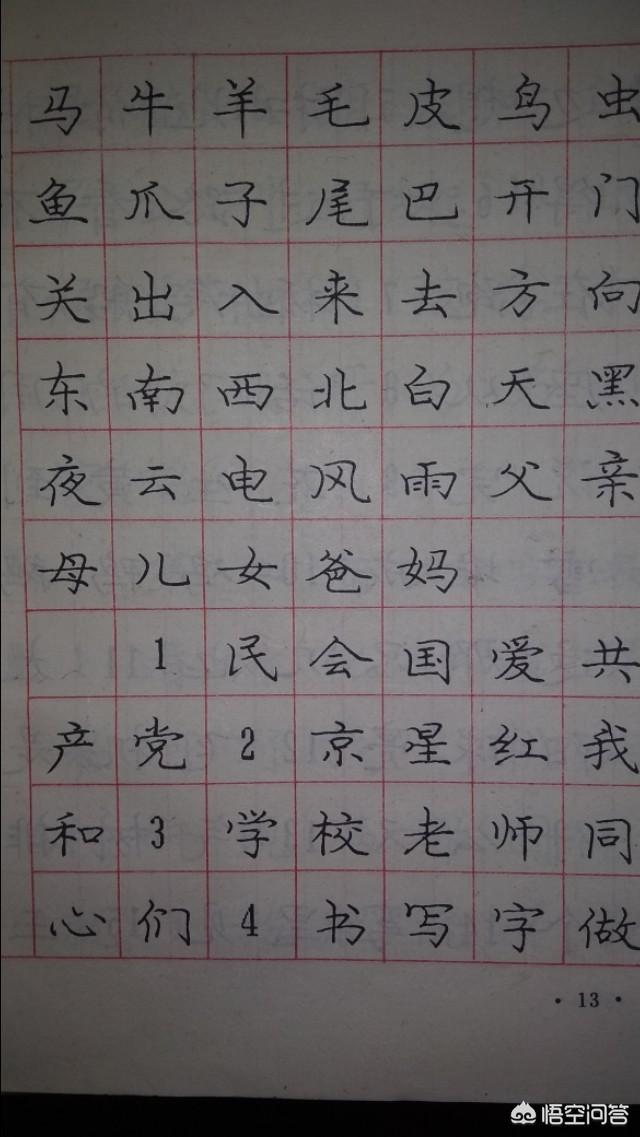 马牛羊毛皮鸟虫
鱼爪子尾巴开门
关出入来去方向
东南西北白天黑
夜云电风雨父亲
母儿女爸妈
1民会国爱共
产党2京星红我
和3学校老师同
心们4书写字做
·13·
悟空问答